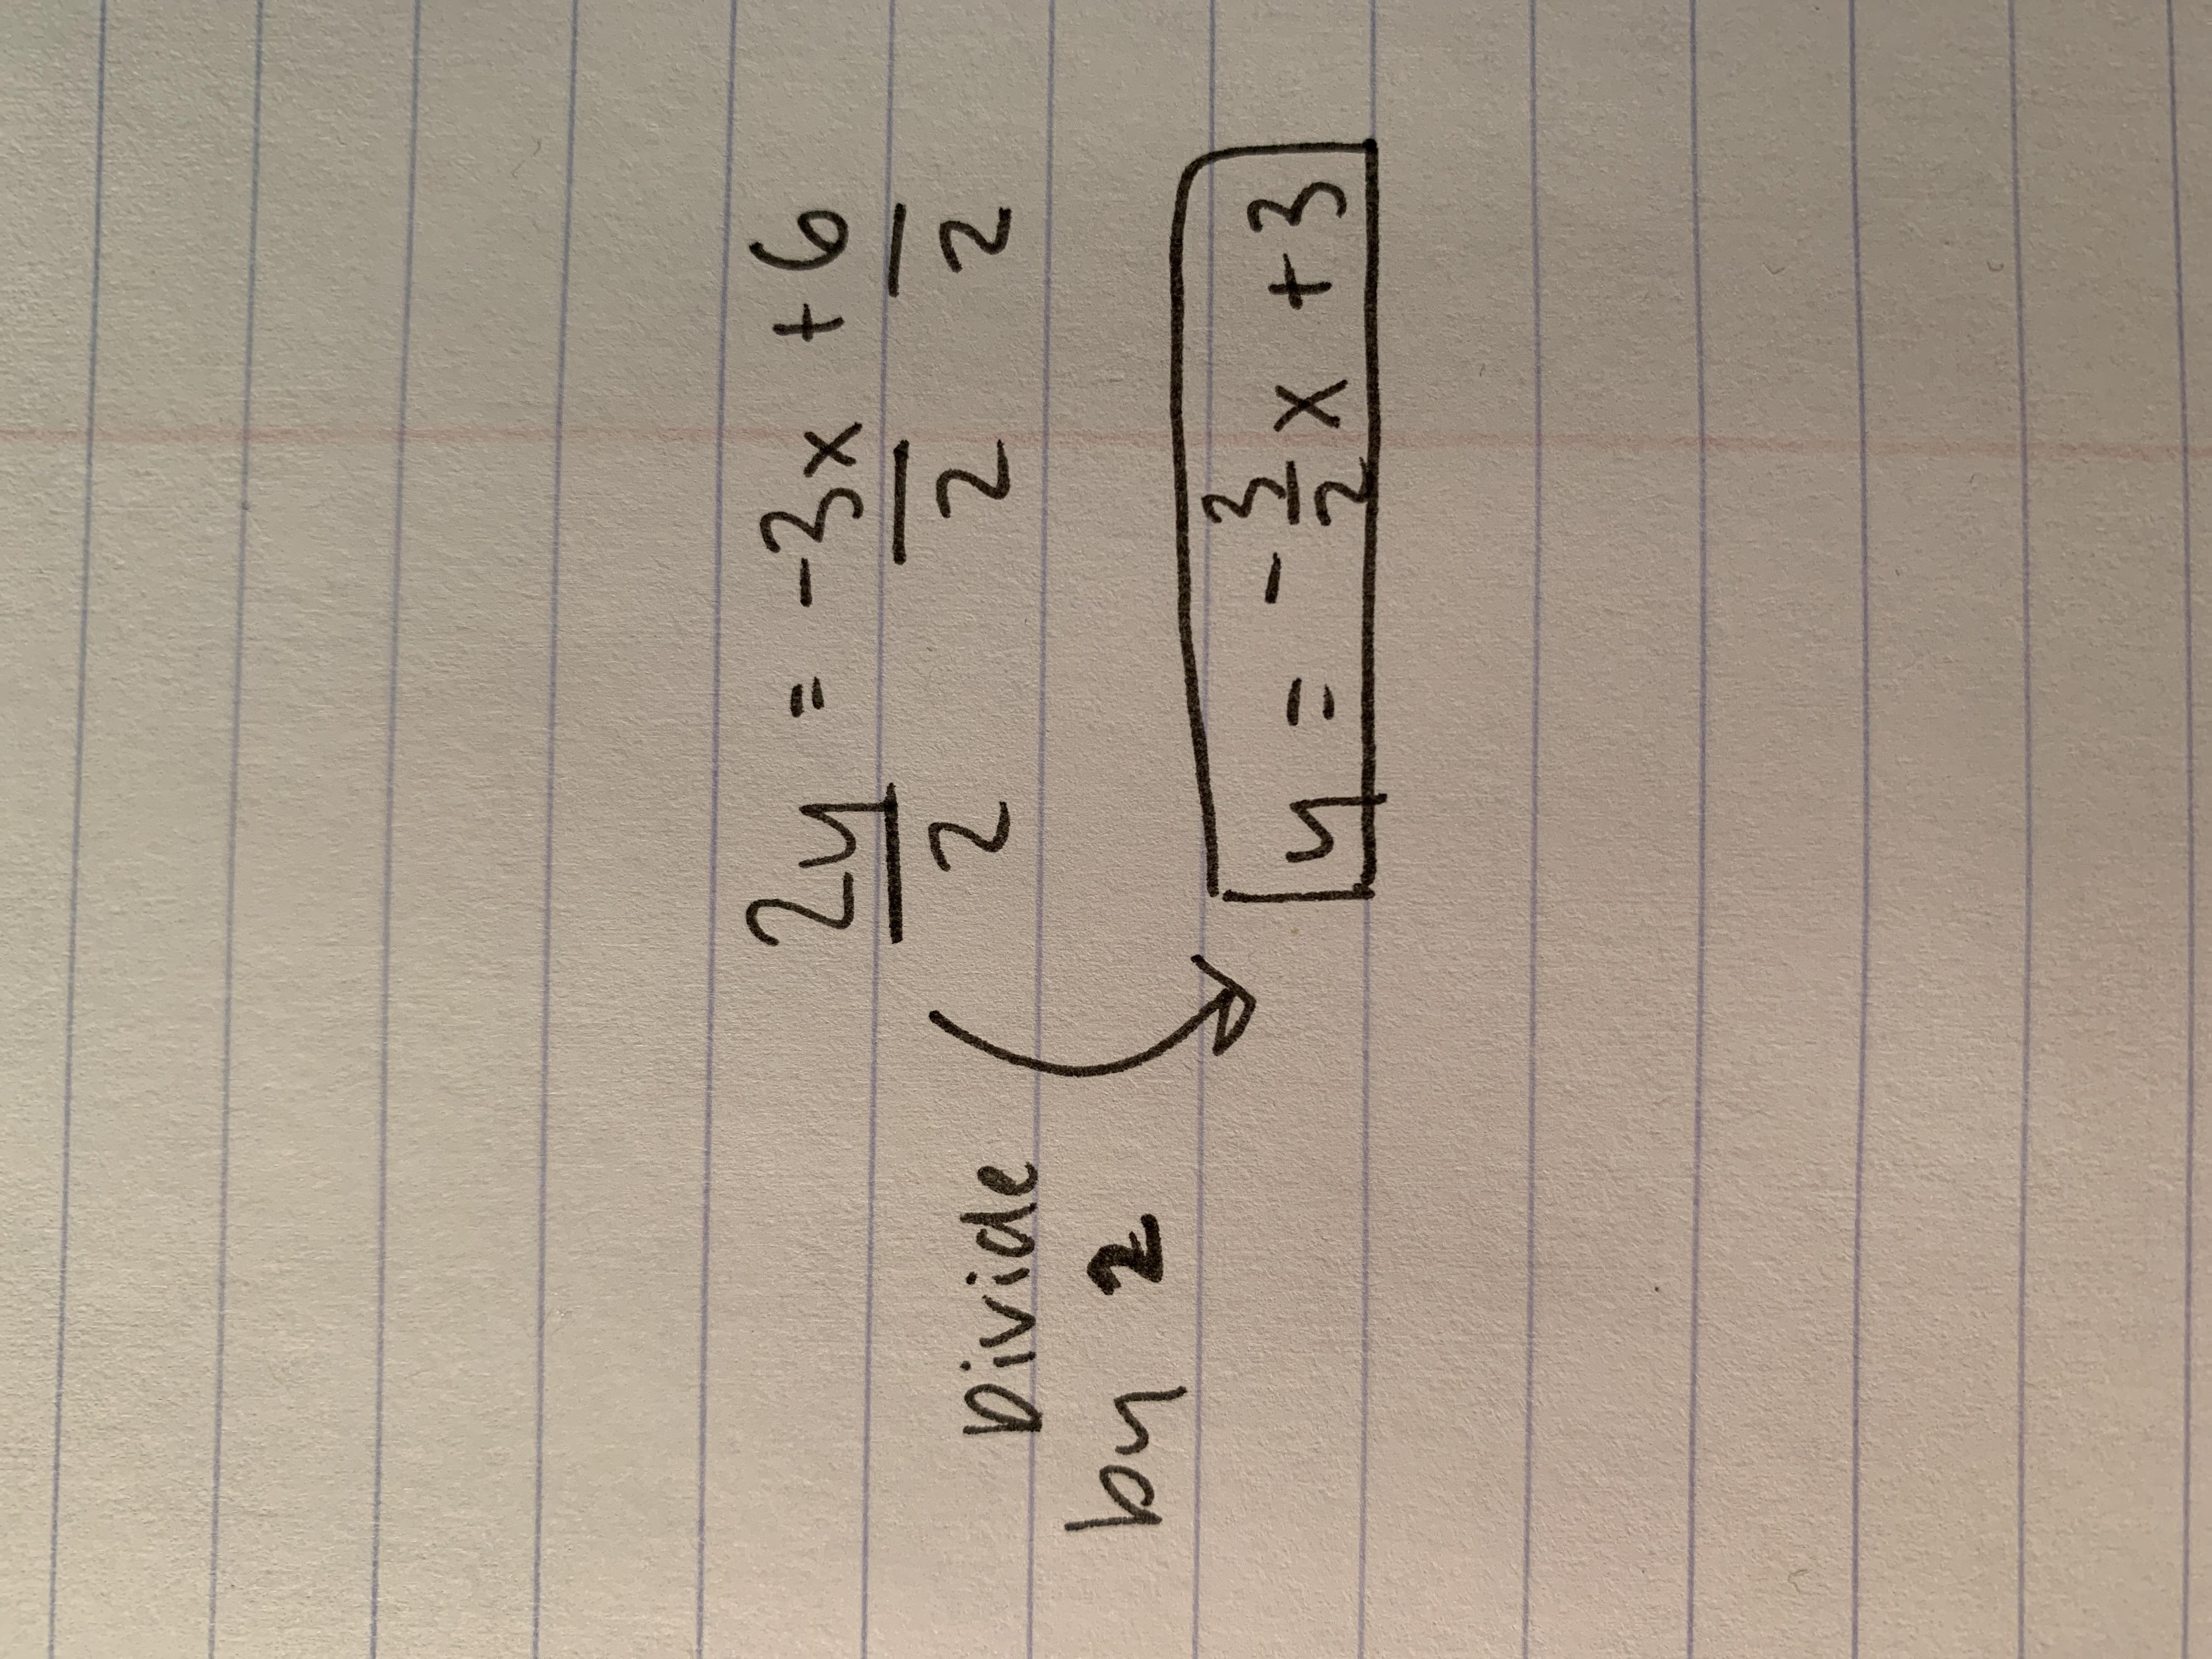 2y = -3x + 6
2 2 2
Divide
by 2
y = -3/2 x + 3